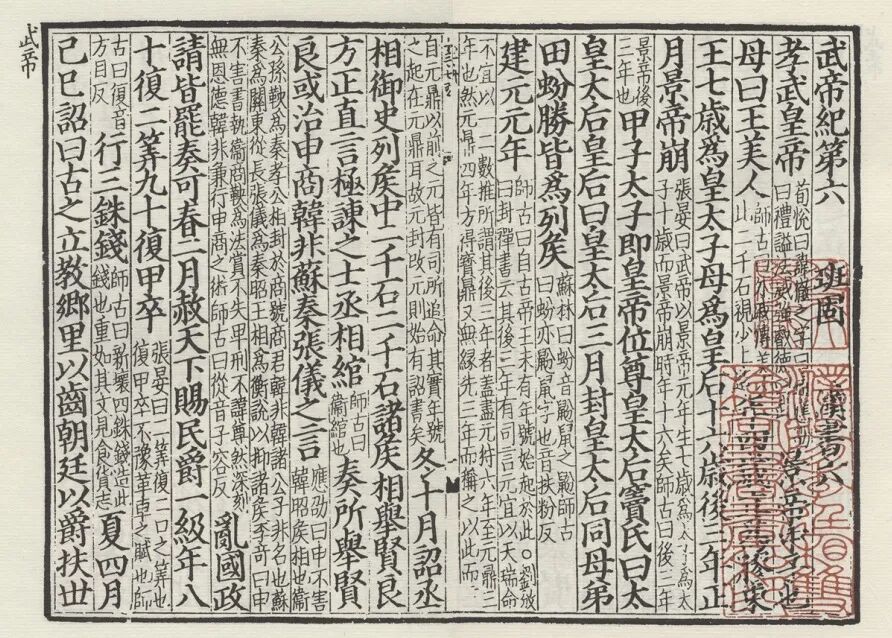 武帝紀第六 班固 漢書六
孝武皇帝
荀悅曰諱徹之字曰通
曰禮謚法威強叡德曰
景帝中子也
母曰王美人
師古曰外戚傳美
比二千石視少上
年四歲立爲膠東
王七歲爲皇太子母爲皇后十六歲後三年正
月景帝崩
張晏曰武帝以景帝元年生七歲爲太子爲太
子十歲而景帝崩時年十六矣師古曰後三年
景帝後
三年也
甲子太子即皇帝位尊皇太后竇氏曰太
皇太后皇后曰皇太后三月封皇太后同母弟
田蚡勝皆爲列侯
蘇林曰蚡音鼢鼠之鼢師古
曰蚡亦鼢鼠字也音扶粉反
建元元年
師古曰自古帝王未有年號始起於此○劉攽
曰封禪書云其後三年有司言元宜以天瑞命
不宜以一二數推所謂其後三年者蓋盡元狩六年至元鼎三
年也然元鼎四年方得寶鼎又無緣先三年而稱之以此而言
自元鼎以前之元皆有司所追命其實年號
之起在元鼎耳故元封改元則始有詔書矣
冬十月詔丞
相御史列侯中二千石二千石諸侯相舉賢良
方正直言極諫之士丞相綰
師古曰
衛綰也
奏所舉賢
良或治申商韓非蘇秦張儀之言
應劭曰申不害
韓昭侯相也衛
公孫鞅爲秦孝公相封於商號商君韓非韓諸公子非名也蘇
秦爲關東從長張儀爲秦昭王相爲衡說以抑諸侯李奇曰申
不害書執術商鞅爲法賞不失卑刑不諱尊然深刻
無恩德韓非兼行申商之術師古曰從音子容反
亂國政
請皆罷奏可春二月赦天下賜民爵一級年八
十復二算九十復甲卒
張晏曰二算復二口之算也
復甲卒不豫革車之賦也師
古曰復音
方目反
行三銖錢
師古曰新壞四銖錢造此
錢也重如其文見食貨志
夏四月
己巳詔曰古之立教鄉里以齒朝廷以爵扶世
武帝